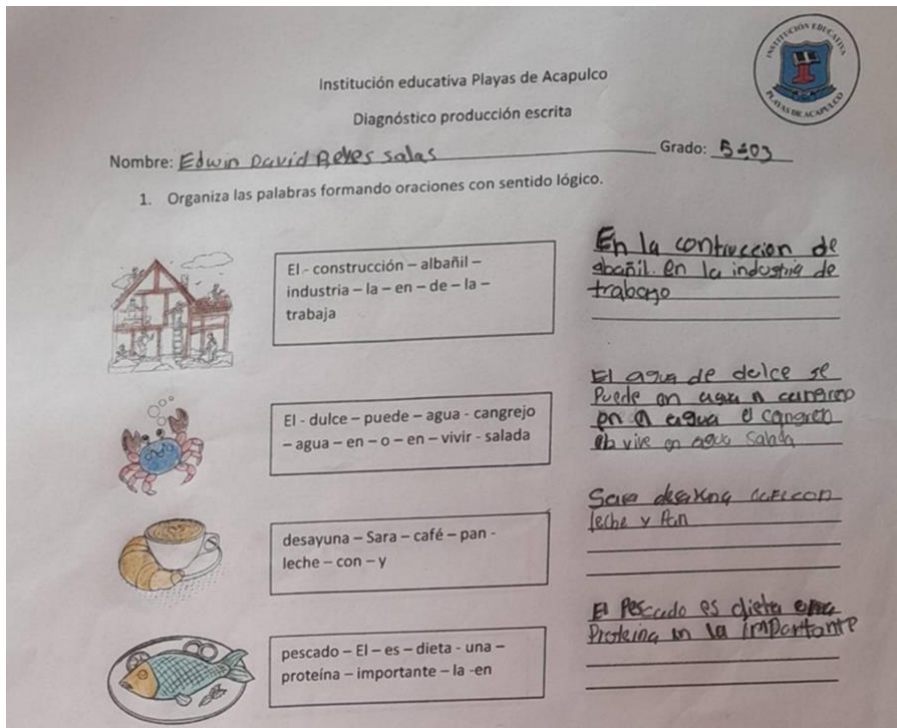 INSTITUCIÓN EDUCATIVA
PLAYAS DE ACAPULCO
Institución educativa Playas de Acapulco
Diagnóstico producción escrita
Nombre: Edwin David Reyes Salas Grado: 5=03
1. Organiza las palabras formando oraciones con sentido lógico.
El - construcción – albañil –
industria – la – en – de – la –
trabaja
En la contruccion de
abañil. en la industria de
trabago
El - dulce – puede – agua - cangrejo
– agua – en – o – en – vivir - salada
El agua de dulce se
Puede en agua
en agua el
vive en agua Salada
desayuna – Sara – café – pan -
leche – con – y
Sara con
leche y Pan
pescado – El – es – dieta - una –
proteína – importante – la -en
El Pescado es dieta
Proteina en la importante